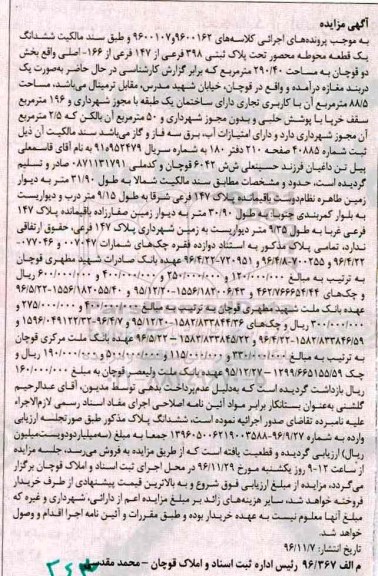 آگهی مزایده
به موجب پرونده‌های اجرائی کلاسه‌های ۹۶۰۰۱۶۲و۹۶۰۰۱۰۷ و طبق سند مالکیت ششدانگ
یک قطعه محوطه محصور تحت پلاک ثبتی ۳۹۸ فرعی از ۱۴۷ فرعی از ۱۶۶- اصلی واقع بخش
دو قوچان به مساحت ۲۹۰/۴۰ مترمربع که برابر گزارش کارشناسی در حال حاضر به‌صورت یک
دربند مغازه درآمده و واقع در قوچان، خیابان شهید مدرس، مقابل ترمینال می‌باشد، مساحت
۸۸/۵ مترمربع آن با کاربری تجاری دارای ساختمان یک طبقه با مجوز شهرداری و ۱۹۶ مترمربع
سقف خرپا با پوشش حلبی و بدون مجوز شهرداری و ۵۰ مترمربع آن بالکن که ۲/۵ مترمربع
آن مجوز شهرداری دارد و دارای امتیازات آب، برق سه فاز و گاز می‌باشد سند مالکیت آن ذیل
ثبت شماره ۴۰۸۸۵ صفحه ۲۱۰ دفتر ۱۸۰ به شماره سریال ۹۵۲۴۷۹ه۹۱ به نام آقای قاسمعلی
بیل تن داغیان فرزند حسینعلی ش‌ش ۶۰۴۲ قوچان و کدملی ۰۸۷۱۱۳۱۷۹۱ صادر و تسلیم
گردیده است، حدود و مشخصات مطابق سند مالکیت شمالا به طول ۳۱/۹۰ متر به دیوار
زمین ظاهره نظام‌دوست باقیمانده پلاک ۱۴۷ فرعی شرقا به طول ۹/۱۵ متر درب و دیواریست
به بلوار کمربندی جنوبا: به طول ۳۰/۹۰ متر به دیوار زمین صفارزاده باقیمانده پلاک ۱۴۷
فرعی غربا به طول ۹/۳۵ متر دیواریست به زمین شهرداری پلاک ۱۴۷ فرعی، حقوق ارتفاقی
ندارد، تمامی پلاک مذکور به استناد دوازده فقره چک‌های شمارات ۰۷۷۰۴۶-۰۰۷۰۴۷ و
۹۶/۴/۲۲ و ۷۰۰۲۵۵-۹۶/۴/۸ و ۷۲۰۹۵۱-۹۶/۴/۲۲ عهده بانک صادرات شهید مطهری قوچان
به ترتیب به مبالغ ۱۲۰/۰۰۰/۰۰۰ و ۲۵۰/۰۰۰/۰۰۰ و ۴۰۰/۰۰۰/۰۰۰ و ۶۰۰/۰۰۰/۰۰۰ ریال
عهده بانک ملت شهید مطهری قوچان به ترتیب به مبالغ ۴۰۰/۰۰۰/۰۰۰ و ۲۷۵/۰۰۰/۰۰۰ و
۹۶/۴/۲۲-۱۵۸۲/۸۳۳۸۴۶/۵۹ و ۹۶/۵/۲۲ – ۱۵۸۲/۸۳۳۸۴۵/۲۲ عهده بانک ملت مرکزی قوچان
به ترتیب به مبالغ ۳۳۰/۰۰۰/۰۰۰ و ۱۱۵/۰۰۰/۰۰۰ و ۵۰۰/۰۰۰/۰۰۰ و ۱۹۰/۰۰۰/۰۰۰ ریال و
چک ۱۲۹۹/۶۶۵۱۵۵/۵۹ – ۹۵/۱۲/۲۷ عهده بانک ملت ولیعصر قوچان به مبلغ ۱۶۰/۰۰۰/۰۰۰
ریال بازداشت گردیده است که به‌دلیل عدم‌پرداخت بدهی توسط مدیون، آقای عبدالرحیم
گلشنی به‌عنوان بستانکار برابر مواد آئین نامه اصلاحی اجرای مفاد اسناد رسمی لازم‌الاجراء
علیه نامبرده تقاضای صدور اجرائیه نموده است، ششدانگ پلاک مذکور طبق صورتجلسه ارزیابی
وارده به شماره ۱۳۹۶۰۵۰۰۶۲۱۹۰۰۳۵۸۸-۹۶/۹/۲۷ جمعا به مبلغ (سه‌میلیاردودویست‌میلیون
ریال) ارزیابی گردیده و قطعیت یافته است که از طریق مزایده به فروش می‌رسد، جلسه مزایده
از ساعت ۱۲-۹ روز یکشنبه مورخ ۹۶/۱۱/۲۹ در محل اجرای ثبت اسناد و املاک قوچان برگزار
می‌گردد، مزایده از مبلغ ارزیابی فوق شروع و به بالاترین قیمت پیشنهادی از طرف خریدار
فروخته خواهد شد، سایر هزینه‌های زائد بر مبلغ مزایده اعم از دارائی، شهرداری و غیره که
مبلغ آنها معلوم نیست به عهده خریدار بوده و طبق مقررات و آئین نامه اجرا اقدام و وصول
خواهد شد.
تاریخ انتشار: ۹۶/۱۱/۷
م الف ۹۶/۳۶۷ رئیس اداره ثبت اسناد و املاک قوچان – محمد مقدسی